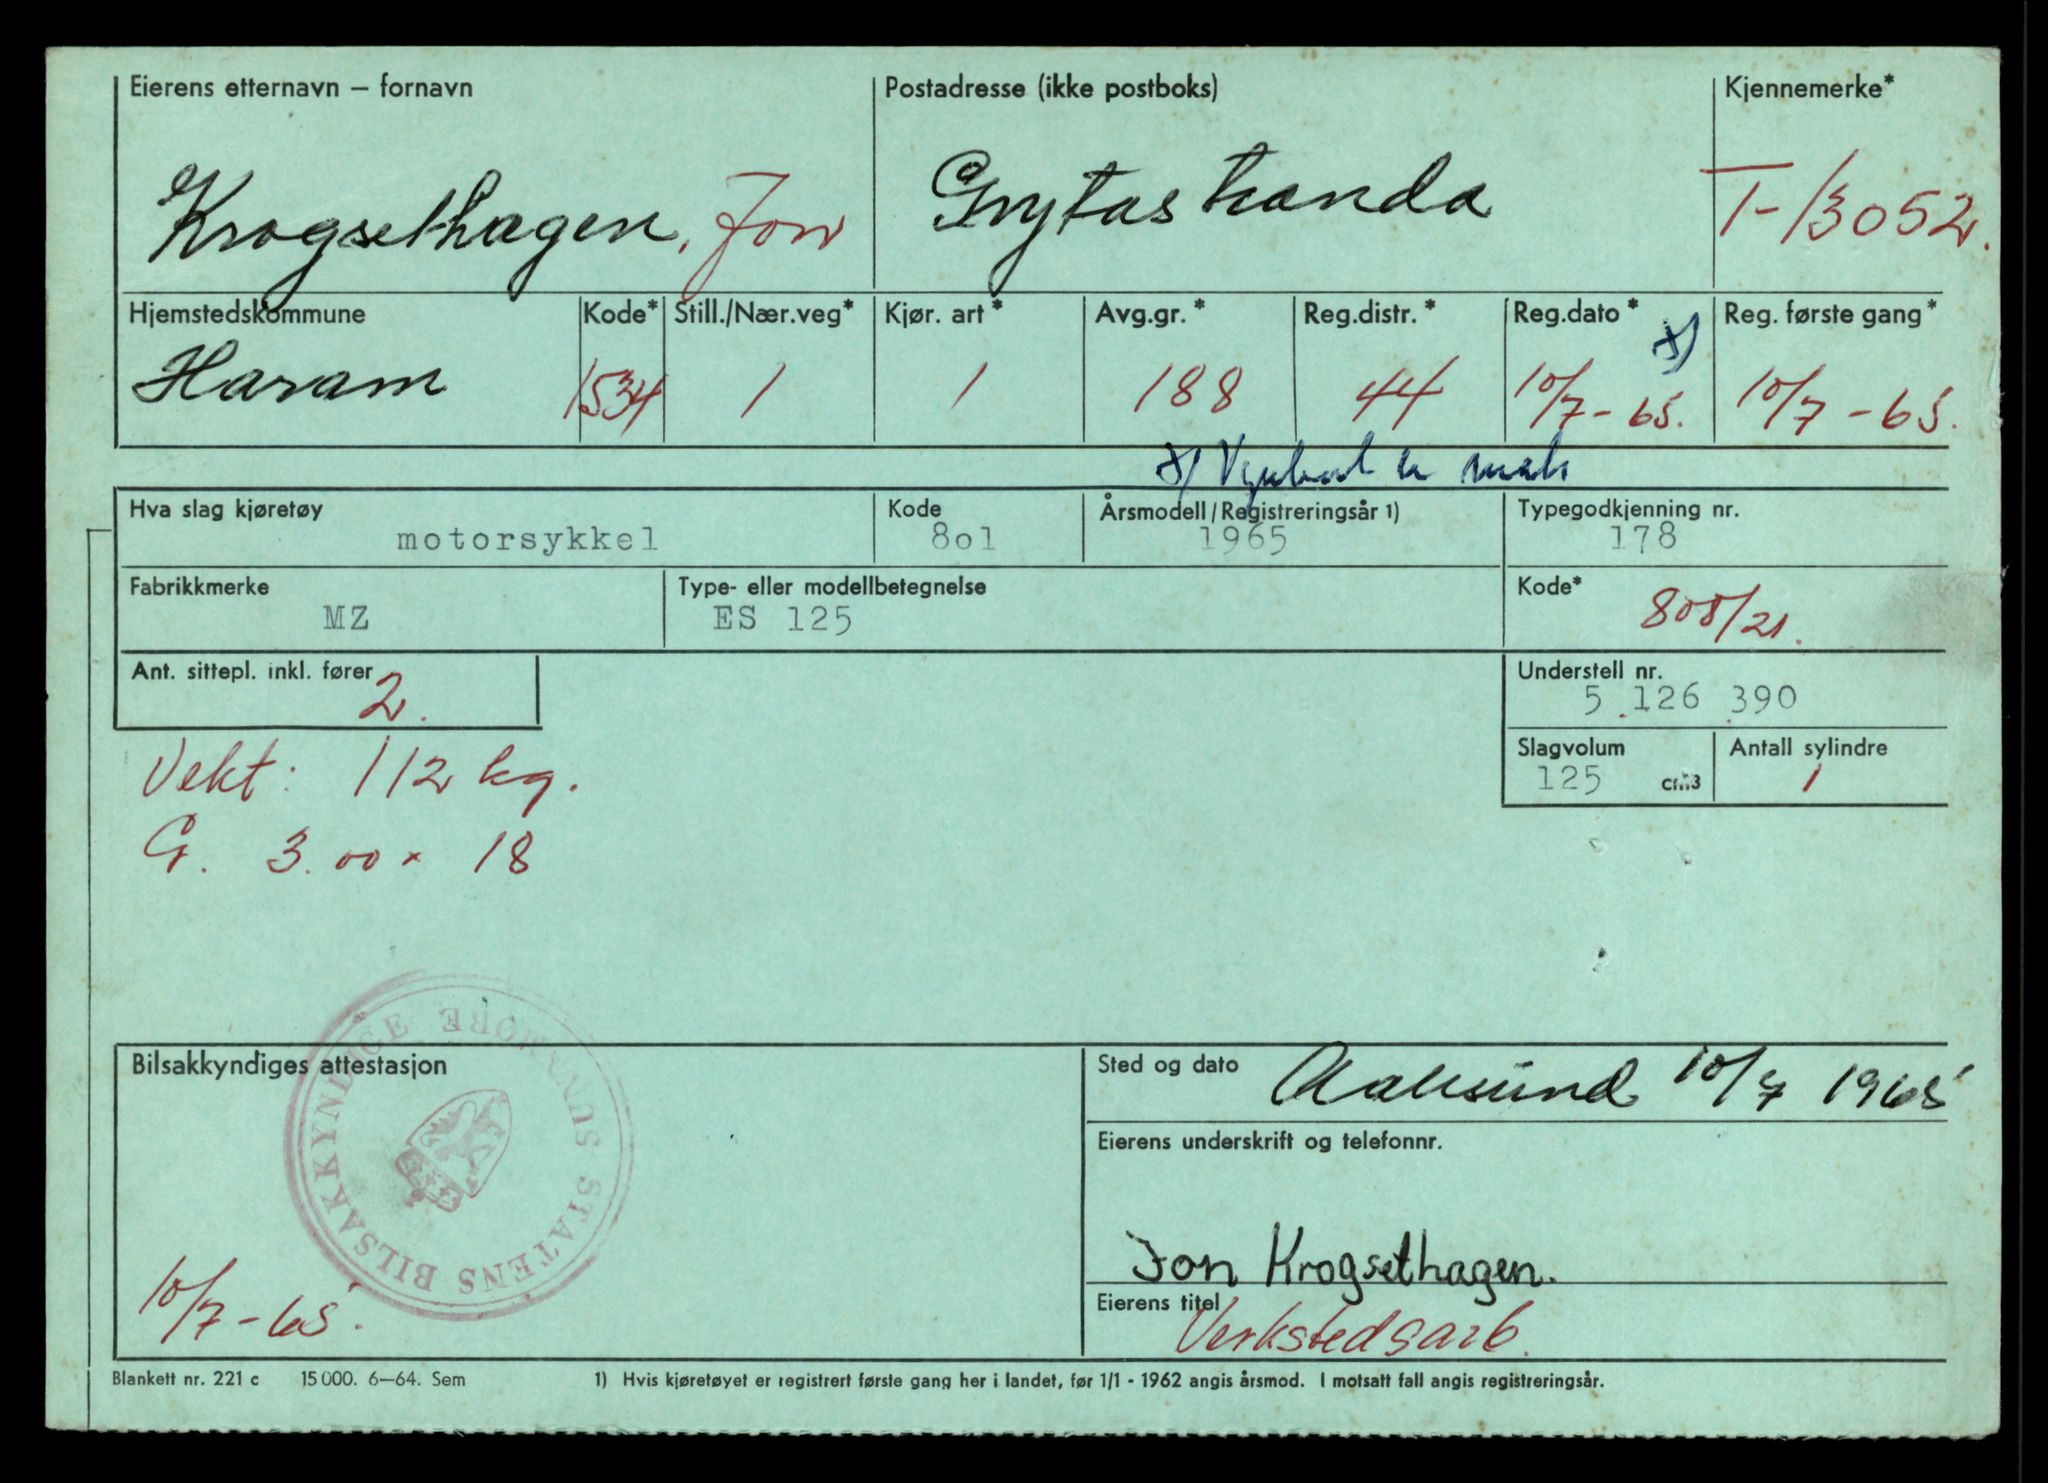 Eierens etternavn – fornavn Postadresse (ikke postboks) Kjennemerke*
Krogsethagen, Jon Grytastranda T-13052.
Hjemstedskommune Kode* Still./Nær.veg* Kjør. art* Avg.gr.* Reg.distr.* Reg.dato* x) Reg. første gang*
Haram 1534 1 1 188 44 10/7-65. 10/7-65.
x)
Hva slag kjøretøy Kode Årsmodell/Registreringsår 1) Typegodkjenning nr.
motorsykkel 8o1 1965 178
Fabrikkmerke Type- eller modellbetegnelse Kode*
MZ ES 125 808/21.
Ant. sittepl. inkl. fører Understell nr.
2. 5.126.390
Slagvolum Antall sylindre
125 cm3 1
Vekt: 112 kg.
G. 3.00 x 18
Bilsakkyndiges attestasjon Sted og dato Aalesund 10/7 1965
STATENS BILSAKKYNDIGE SUNNMØRE
Eierens underskrift og telefonnr.
Jon Krogsethagen.
10/7-65.
Eierens titel
Verkstedsarb.
Blankett nr. 221 c 15 000. 6–64. Sem 1) Hvis kjøretøyet er registrert første gang her i landet, før 1/1 - 1962 angis årsmod. I motsatt fall angis registreringsår.